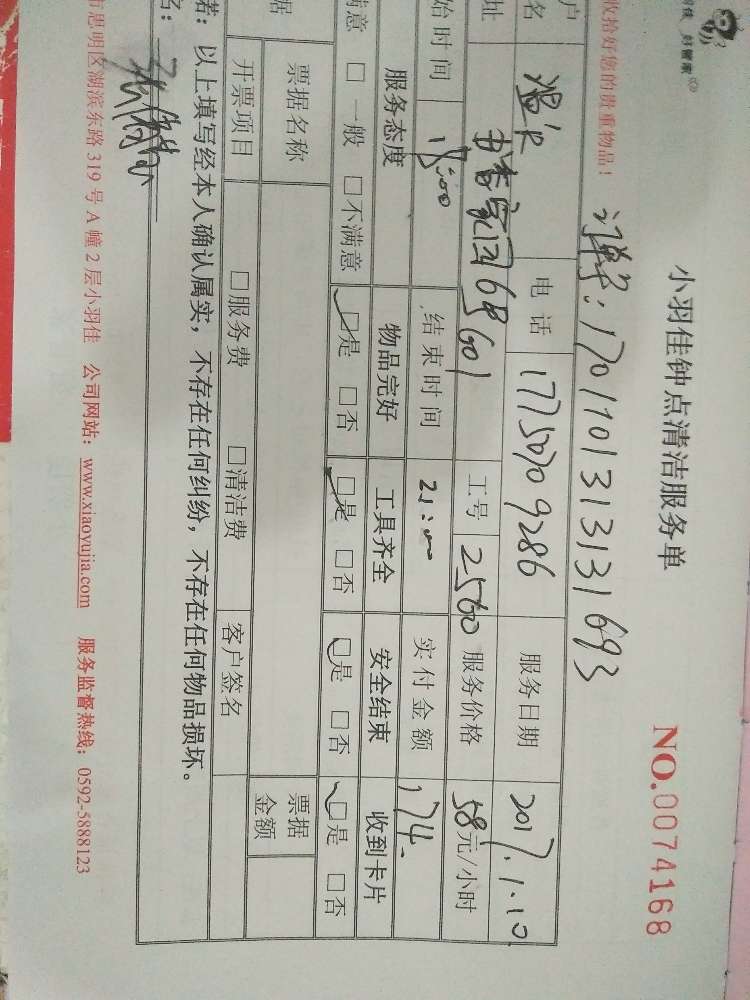 好管家
收拾好您的贵重物品！
小羽佳钟点清洁服务单
NO.0074168
订单号：17011013131331693
户名 温 电话 17750709286 服务日期 2017.1.10
址 书香家园6号601 工号 2560 服务价格 58元/小时
始时间 18:00 结束时间 21:00 实付金额 174.
服务态度 物品完好 工具齐全 安全结束 收到卡片
满意 □一般 □不满意 ☑是 □否 ☑是 □否 ☑是 □否 ☑是 □否
据 票据名称 票据金额
开票项目 □服务费 □清洁费 客户签名
著：以上填写经本人确认属实，不存在任何纠纷，不存在任何物品损坏。
名：
市思明区湖滨东路 319 号 A 幢 2 层小羽佳 公司网站：www.xiaoyujia.com 服务监督热线：0592-5888123